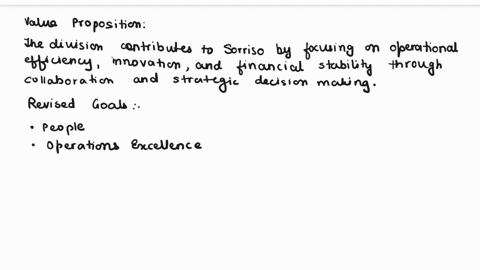 Value Proposition:
The division contributes to Sorriso by focusing on operational
efficiency, innovation, and financial stability through
collaboration and strategic decision making.
Revised Goals:.
• People
• Operations Excellence